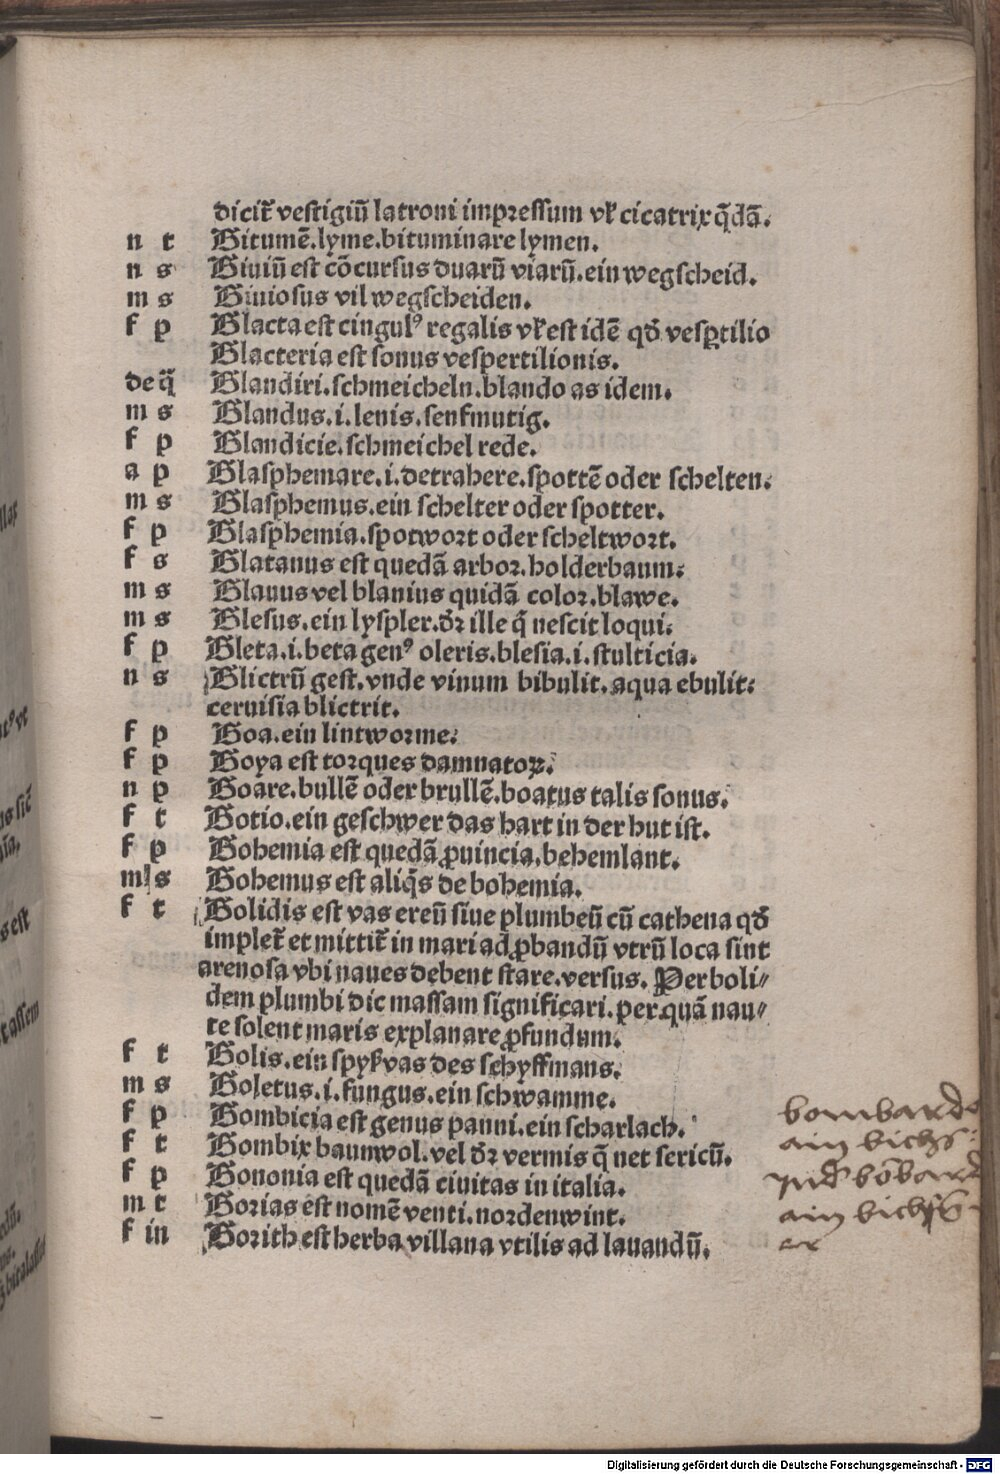 dicit᷑ vestigiū latroni impressum vl̓ cicatrix q̄dā.
n t Bitumē.lyme.bituminare lymen.
n s Biuiū est cōcursus duarū viarū.ein wegscheid.
m s Biuiosus vil wegscheiden.
f p Blacta est cingulꝰ regalis vl̓ est idē qđ vesp̲tilio
Blacteria est sonus vespertilionis.
de q̄ Blandiri.schmeicheln.blando as idem.
m s Blandus.i.lenis.senfmutig.
f p Blandicie.schmeichel rede.
a p Blasphemare.i.detrahere.spottē oder schelten.
m s Blasphemus.ein schelter oder spotter.
f p Blasphemia.spotwort oder scheltwort.
f s Blatanus est quedā arbor.holderbaum.
m s Blauus vel blauius quidā color.blawe.
m s Blesus.ein lyspler.đr ille q̄ nescit loqui.
f p Bleta.i.beta genꝰ oleris.blesia.i.stulticia.
n s Blictrū gest.vnde vinum bibulit.aqua ebulit.
ceruisia blictrit.
f p Boa.ein lintworme.
f p Boya est torques damnatoꝝ.
n p Boare.bullē oder brullē.boatus talis sonus.
f t Botio.ein geschwer das hart in der hut ist.
f p Bohemia est quedā ꝓuincia.behemlant.
m s Bohemus est aliq̄s de bohemia.
f t Bolidis est vas ereū siue plumbeū cū cathena qđ
implet᷑ et mittit᷑ in mari ad ꝓbandū vtrū loca sint
arenosa vbi naues debent stare.versus. Per boli⸗
dem plumbi dic massam significari.per.quā nau⸗
te solent maris explanare ꝓfundum.
f t Bolis.ein spyßvas des schyffmans.
m s Boletus.i.fungus.ein schwamme.
f p Bombicia est genus panni.ein scharlach.
f t Bombix baumwol.vel đr vermis q̄ net sericū.
f p Bononia est quedā ciuitas in italia.
m t Borias est nomē venti.nordenwint.
f in Borith est herba villana vtilis ad lauandū.
bombarda
ain bichs
Ind̓ bōbard
ain bichsē
er
Digitalisierung gefördert durch die Deutsche Forschungsgemeinschaft - DFG